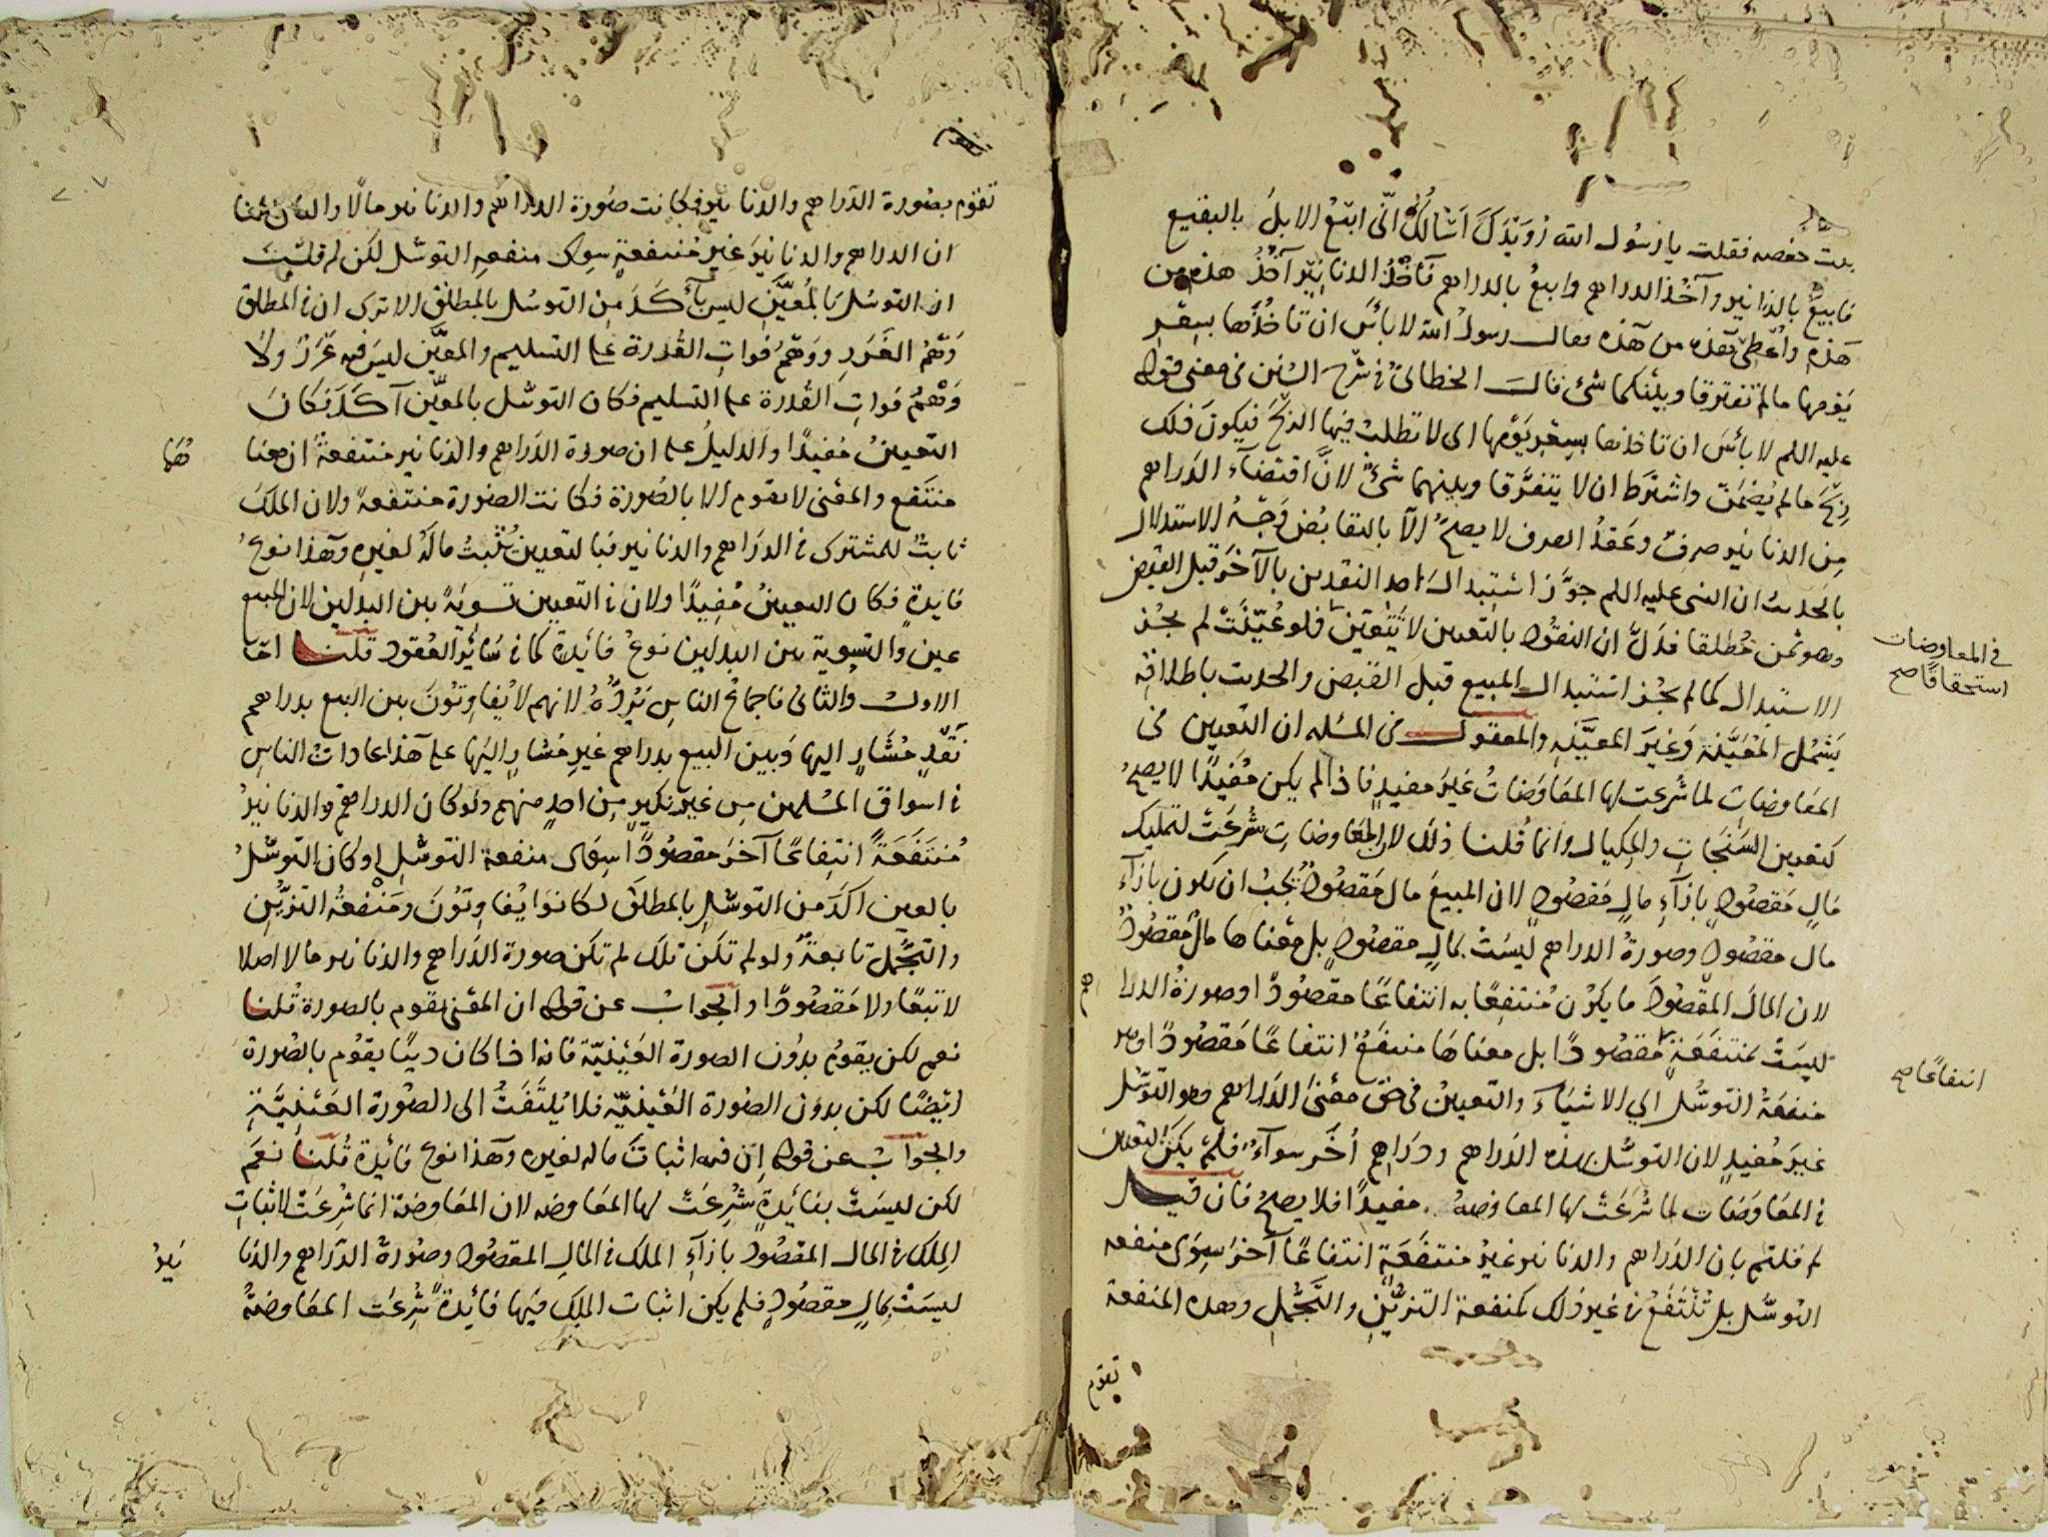 بيت حفصه فقلت يا رسول الله رُوَيْدَكَ اَسْاَلُكَ انّى ابيْعُ الابلَ بالبقيع
فابيعُ بالدنانير وآخُذُ الدراهم وابيعُ بالدراهم فآخُذُ الدنانِيْرَ آخُذُ هذه من
هَذِهِ واُعْطِى هَذِه من هَذه فقال رسولُ الله لا بأسَ ان تاخُذَها بسِعْرِ
يَوْمِها مالم تفترقا وبينَكما شئ قالَ الخطابىُّ فى شرح السُنن فى معنى قوله
عليه السلم لا بأسَ ان تاخذها بسِعْرِ يَوْمِها اى لا تطلبْ فيها الرِّبْحَ فيكونَ ذلك
رِبْحَ مالم يُضْمَنْ واشتَرَط ان لا يتفرَّقا وبينهما شئٌ لانَّ اقتضآءَ الدراهم
مِن الدنانيْرِ صرفٌ وعَقدُ الصرف لا يصحُّ الاّ بالتقابُض وَجْهُ الاستدلال
بالحديث ان النبى عليه السلم جوَّزَ اسْتِبْدالَ احد النقدين بالآخَرِ قبل القبض
وهو ثمن مُطلقا فدَلَّ ان النقود بالتعيين لا تَتَعَيَّنُ فلو عُيِّنَتْ لم يجُز
الاستبدال كما لم يجُز استبدال المبيع قبل القبض والحديث باطلاقه
يَشمُل المُعَيَّنَةَ وَغيرَ المعيَّنَةِ والمعقولُ فى المسئله ان التعيين فى
المعاوضات لما شُرعت لها المعَاوَضاتُ غيرَ مفيدٍ فاذا لم يكن مُفيدًا لا يصحُّ
كتعيين السَنَجَاتِ والمِكيال وانما قُلنا ذلك لان المعَاوضات شُرعَتْ لتمليك
مَالٍ مَقصُودٍ بازآءِ مالٍ مَقصُودٍ لان المبيعَ مال مَقصُودٌ يجبُ ان يكون بازآءِ
مال مقصُود وصورةُ الدراهم ليْسَتْ بمالٍ مقصُودٍ بل معْناها مالٌ مَقصُودٌ
لان المالَ المقصُودَ ما يكوْن مُنتفِعًا به انتفاعًا مقصُودًا وصورةُ الدرا
هم
ليسَتْ بمنتفَعَةٍ مَقصُودًا بل معناهَا منتفَعٌ انتفاعًا مَقصُودًا وهو
منفعَةُ التوسُّل الى الاشيَآء والتعيينُ فى حق معنَى الدَراهم وهو التوسّل
غيرُ مُفيدٍ لان التوسُّل بهذه الدراهم ودَراهم اُخَر سوآءٌ فلَمْ يكن التعيين
فى المعَاوَضات لما شُرعَتْ لها المعاوضهُ مفيدًا فلا يصحُّ فان قيل
لم قلتم بان الدَراهم والدنانير غيرُ منتفَعَة انتفاعًا آخرَ سِوَى منفعه
التوسُّل بل تُنْتَفَعُ فى غير ذلك كمنفعة التزيُّنِ والتجَمُّلِ وهذه المنفعة
تقوم
فى المعاوضات
استحقاقًا صح
انتفاعًا صح
تقوم بصُورة الدَراهم والدنانير فكانت صُورة الدراهم والدنانير مالًا
ان الدراهم والدنانيرَ غيرُ مُنتفعةٍ سِوى منفعهِ التوسُّل لكن لم قلتَ
ان التوسُل بالمُعيَّنِ ليسَ بآكَدَ مِن التوسُل بالمطلق الا ترى ان فى المطلق
وَهْمُ الغَرَرِ ووَهْمُ فواتِ القُدرة على التسليم والمعيَّن ليسَ فيه غَرَرٌ ولا
وَهْمُ فواتِ القُدرة على التسليم فكان التوسُّل بالمعيَّن آكَدَ فكانَ
التعيينُ مُفيدًا والدليلُ على ان صورة الدَراهم والدنانير منتفعةٌ ان معنا
هَا
منتَفع والمعْنى لا يقوم الا بالصُورة فكانت الصُورة منتفعةً ولان الملكَ
ثابتٌ للمشترى فى الدرَاهم والدنانير فبالتعيين يُثْبِتُ مالَهُ لغيرِه وهَذا نوعُ
فايدةٍ فكان التعيينُ مُفِيدًا ولان فى التعيين تسويَةً بين البدلين لان المبيع
عين والتسوية بين البدلين نوعُ فائدة كما فى سَائر العُقود قلنا امّا
الاولُ والثانى فاجماعُ الناسِ يَرُدُّهُ لانهم لا يُفاوِتُونَ بين البيع بدراهم
نَقْدٍ مُشَارٍ اليها وَبين البيع بدراهم غيرِ مُشارٍ اليها على هَذا عاداتُ الناسِ
فى اسواق المسْلمين مِن غير نكيرٍ مِن احدٍ منهم ولو كان الدراهمُ والدنانيرُ
مُنتَفَعَةً انتفاعًا آخرَ مقصُودًا سِوى منفعة التوسُّلِ او كان التوسُّلُ
بالعين اكَدَ من التوسُّل بالمطلق لكانوَا يُفاوِتُونَ ومَنْفعةُ التزيُّنِ
والتجمُّل تابعةٌ ولو لم تكن تلك لم تكن صورة الدَراهم والدنانير مالا اصلا
لا تبعًا ولا مَقصُودًا والجواب عن قوله ان المعْنى يقوم بالصورة قُلنا
نعم لكن يقومُ بدُون الصورة العَيْنيّة فانه اذا كان دينًا يقوُم بالصُورة
ايضًا لكن بدون الصُورة العَيْنيّة فلا يُلتَفَتُ الى الصُورة العَيْنِيَّةِ
والجوابُ عن قوله اِن فيه اثباتَ ماله لغيره وهَذا نوع فائدة قُلنا نعَم
لكن ليسَتْ بفائدةٍ شُرِعَتْ لها المعَاوضه لان المعَاوضَة انما شُرِعَتْ لاثباتِ
الملك فى المال المقصُود بازآءِ الملك فى المالِ المقصُود وصُورةُ الدَراهم والدنا
نير
ليسَتْ بمالٍ مقصُودٍ فلم يكن اثبات الملِك فيها فائدةً شُرعَت المعَاوضةُ